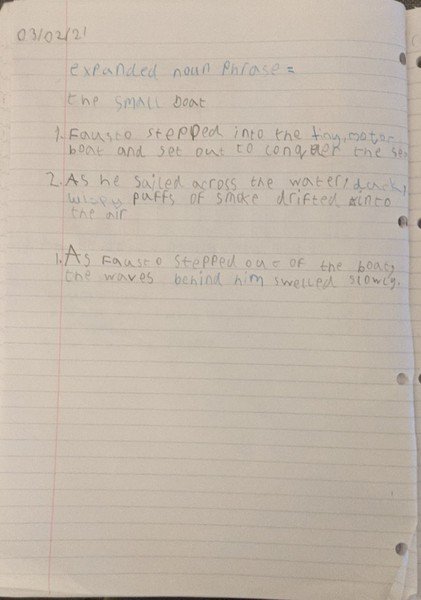 03/02/21
expanded noun phrase =
the small boat
1. Fausto stepped into the tiny, motor
boat and set out to conquer the sea
2. As he sailed across the water, dark,
wispy puffs of smoke drifted into
the air
1. As Fausto stepped out of the boat,
the waves behind him swelled slowly.